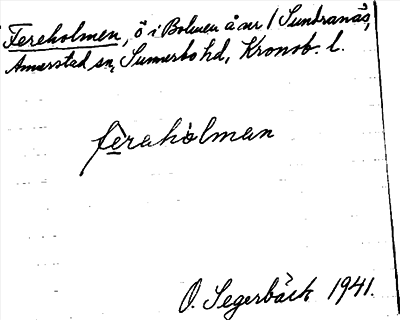 Fereholmen, ö i Bolmen å ner / Sundranäs,
Annerstad sn, Sunnerbo hd, Kronob. l.
feraholman
O. Segerbäck 1941.